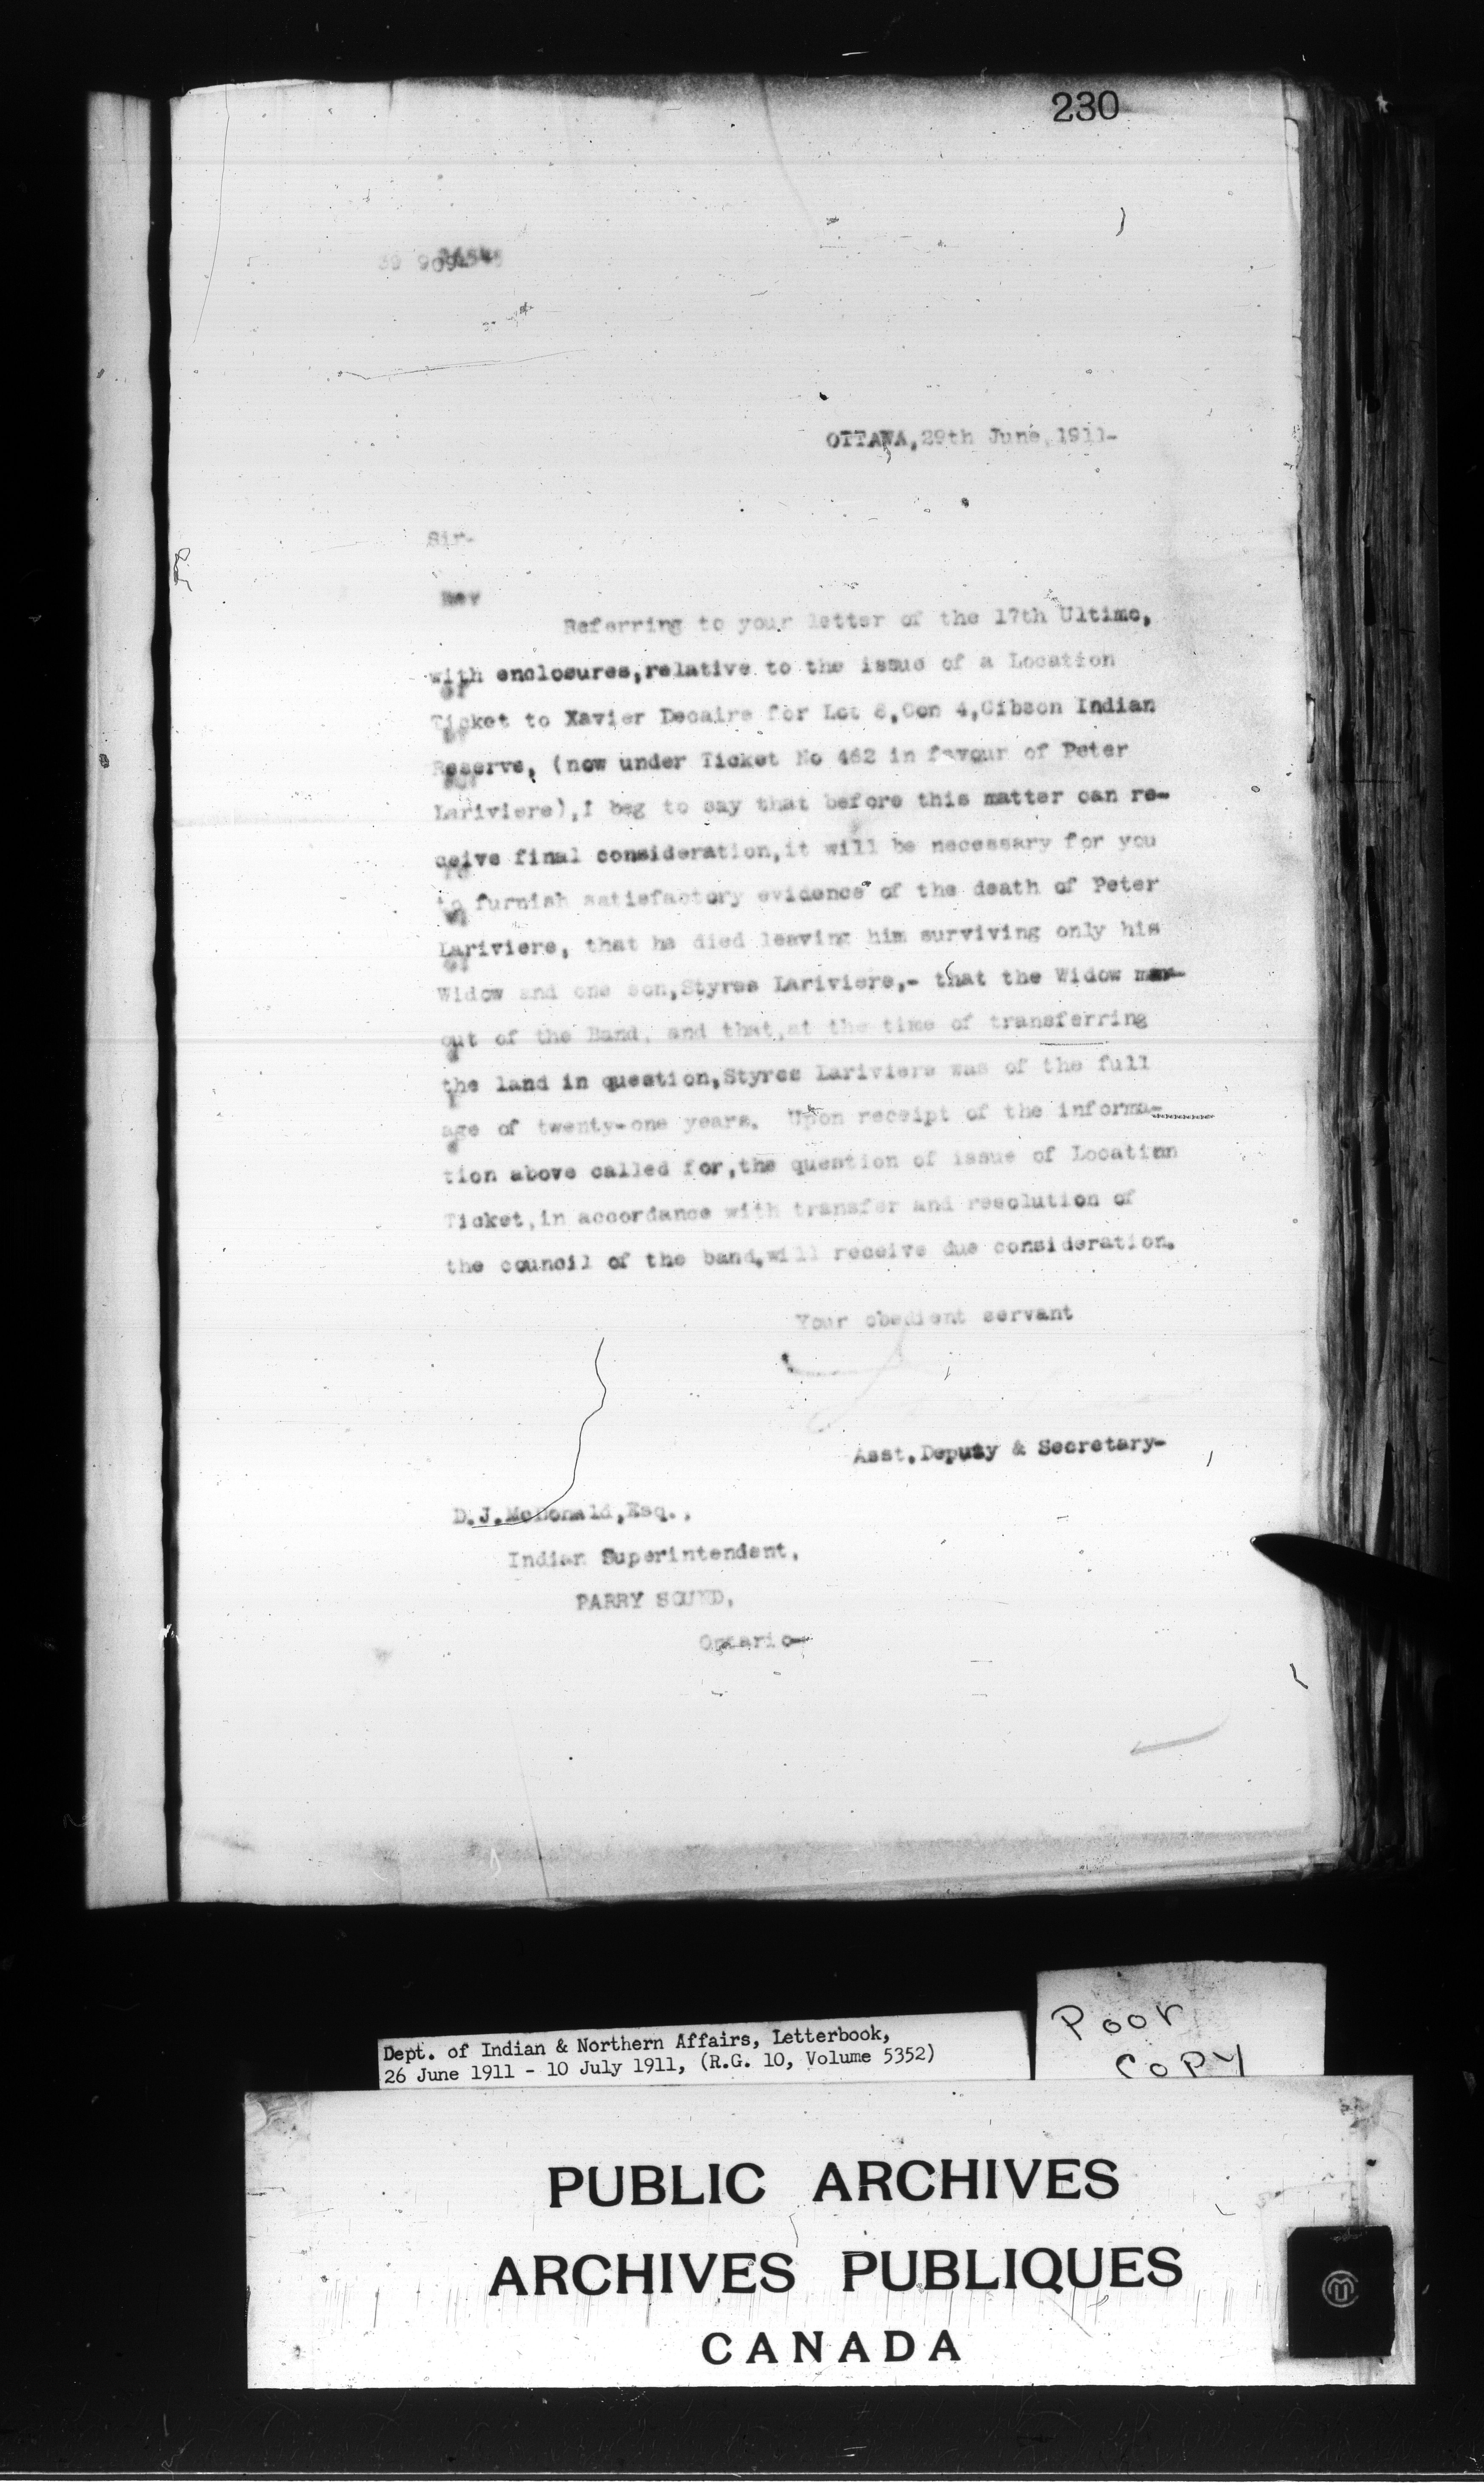 230
OTTAWA, 29th June, 1911-
Sir-
Referring to your letter of the 17th Ultimo,
with enclosures, relative to the issue of a Location
Ticket to Xavier Decaire for Lot 8, Con 4, Gibson Indian
Reserve, (now under Ticket No 462 in favour of Peter
Lariviere), I beg to say that before this matter can re-
ceive final consideration, it will be necessary for you
to furnish satisfactory evidence of the death of Peter
Lariviere, that he died leaving him surviving only his
Widow and one son, Styres Lariviere,- that the Widow
out of the Band, and that, at the time of transferring
the land in question, Styres Lariviere was of the full
age of twenty-one years. Upon receipt of the informa-
tion above called for, the question of issue of Location
Ticket, in accordance with transfer and resolution of
the council of the band, will receive due consideration.
Your obedient servant
Asst. Deputy & Secretary-
D. J. McDonald, Esq.,
Indian Superintendent,
PARRY SOUND,
Ontario-
Dept. of Indian & Northern Affairs, Letterbook,
26 June 1911 - 10 July 1911, (R.G. 10, Volume 5352)
Poor
COPY
PUBLIC ARCHIVES
ARCHIVES PUBLIQUES
CANADA